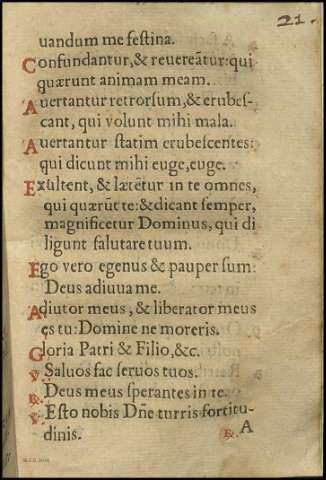 21.
uandum me festina.
Confundantur, & reuereãtur: qui
quærunt animam meam.
Auertantur retrorsum, & erubes-
cant, qui volunt mihi mala.
Auertantur statim erubescentes:
qui dicunt mihi euge, euge.
Exultent, & lætẽtur in te omnes,
qui quærũt te: & dicant semper,
magnificetur Dominus, qui di
ligunt salutare tuum.
Ego vero egenus & pauper sum:
Deus adiuua me.
Adiutor meus, & liberator meus
es tu: Domine ne moreris.
Gloria Patri & Filio, &c.
℣. Saluos fac seruos tuos.
℟. Deus meus sperantes in te.
℣. Esto nobis Dñe turris fortitu-
dinis. ℟. A